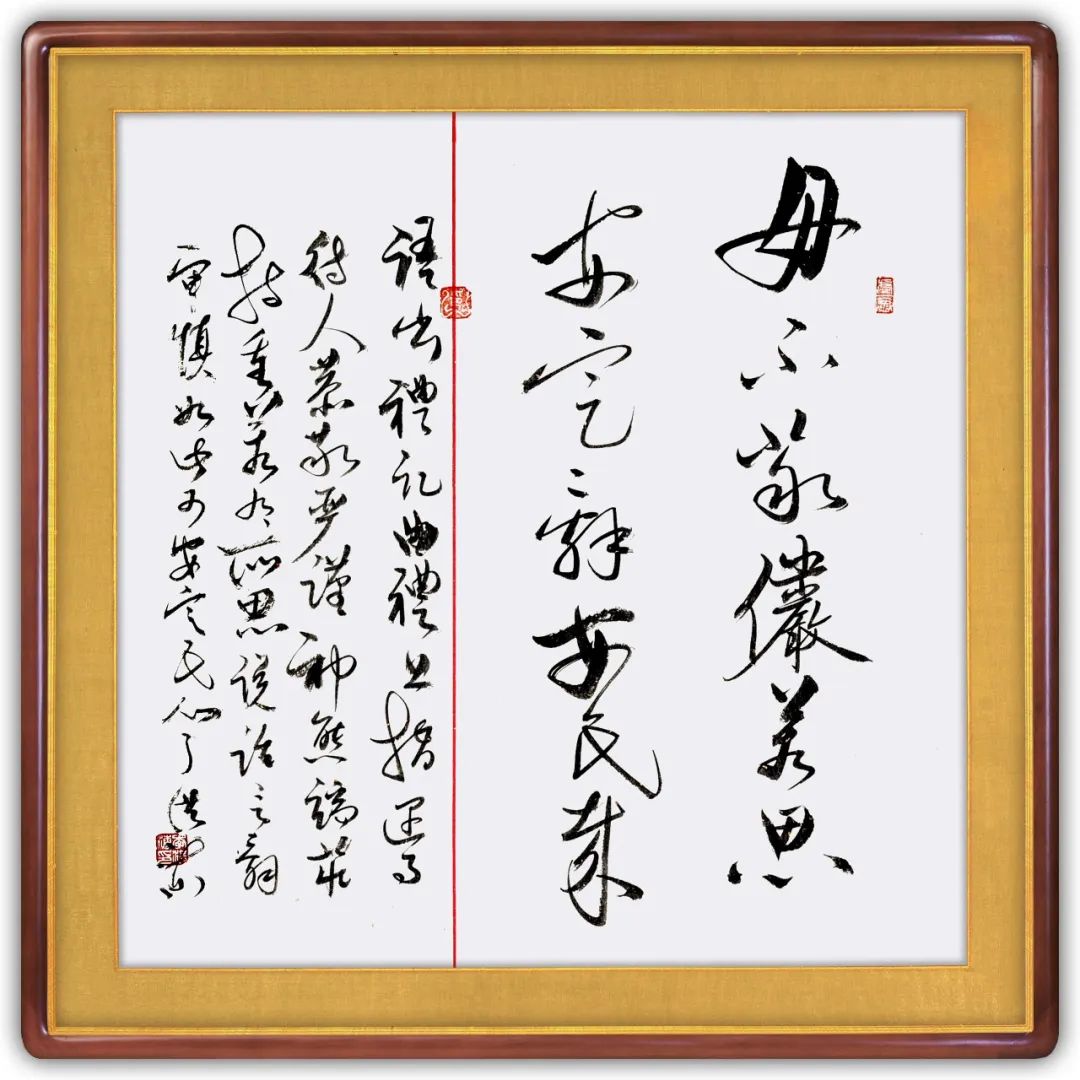 毋不敬儼若思
安定辭安民哉
語出禮記曲禮上指遇事
待人恭敬严謹神態端莊
持重若有所思説話言辭
審慎如此可安定民心了洪